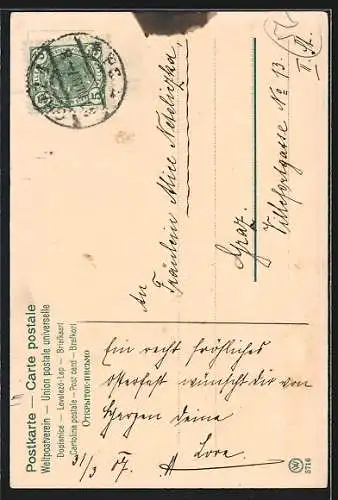 Postkarte — Carte postale
Weltpostverein — Union postale universelle
Dopisnice — Levelező-Lap — Briefkaart
Cartolina postale — Post card — Brefkort
Открытое письмо
GRAZ
5
An
Fräulein Alice
Graz.
No 13.
II. St.
Ein recht fröhliches
Osterfest wünscht dir von
Herzen deine
Lore.
31/3 07.
W
5716